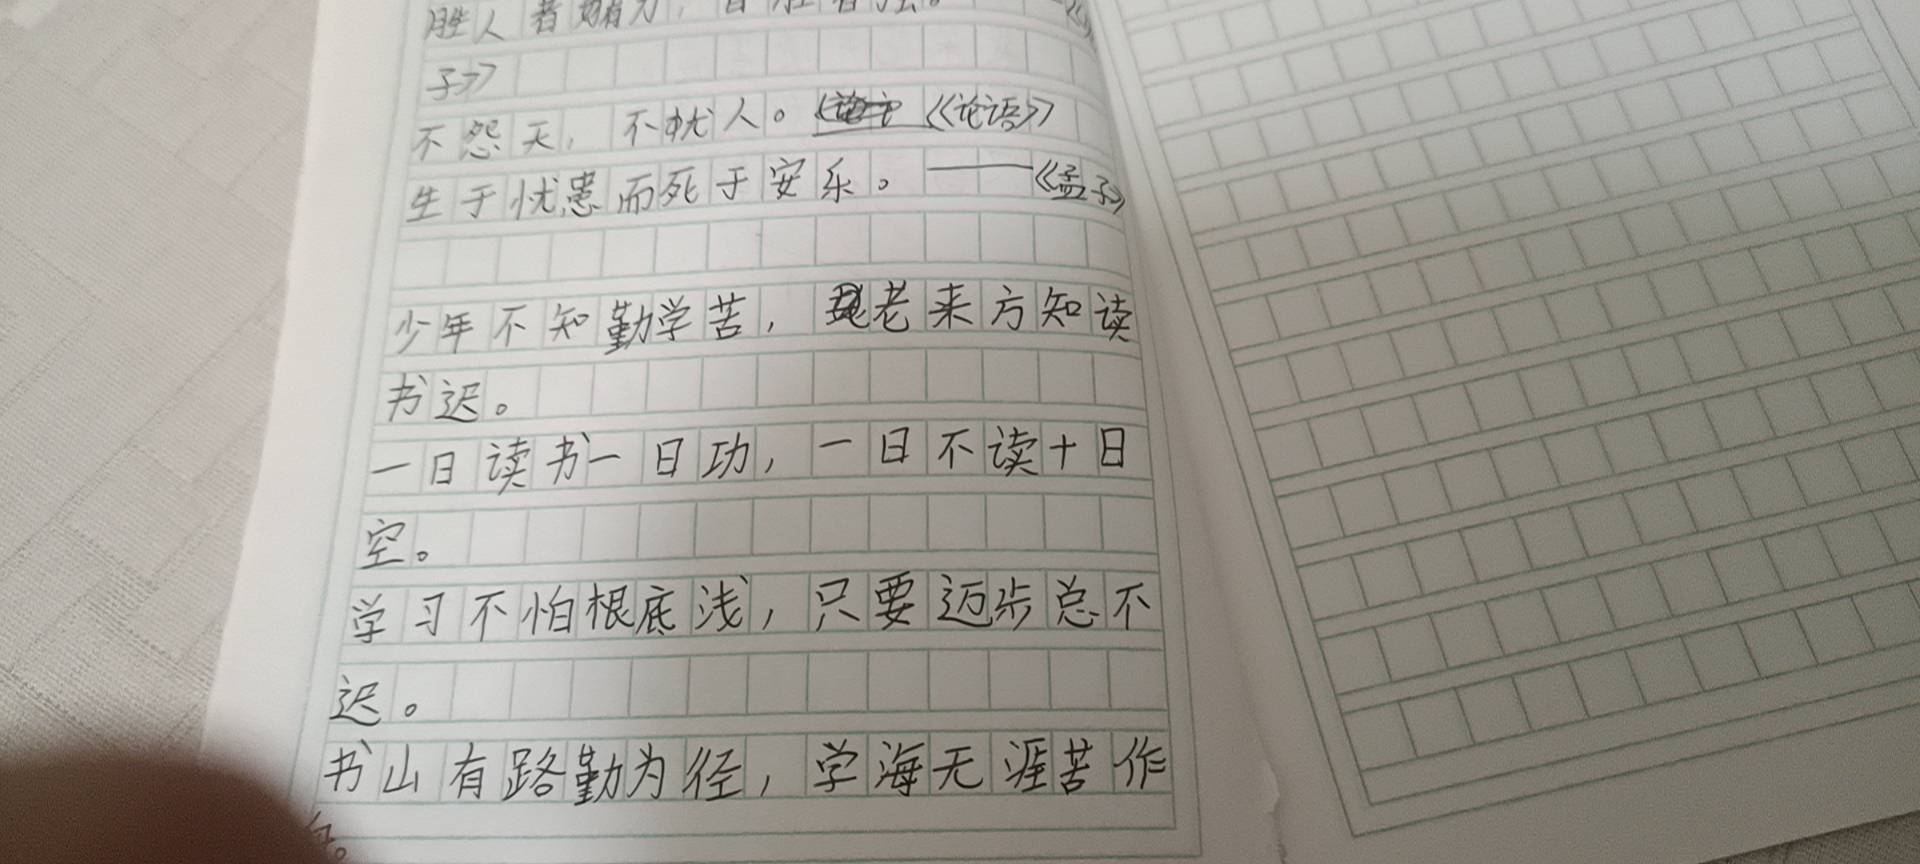 胜人者有力，自胜者强。
子》
不怨天，不扰人。 《论语》
生于忧患而死于安乐。——《孟子》
少年不知勤学苦，老来方知读
书迟。
一日读书一日功，一日不读十日
空。
学习不怕根底浅，只要迈步总不
迟。
书山有路勤为径，学海无涯苦作